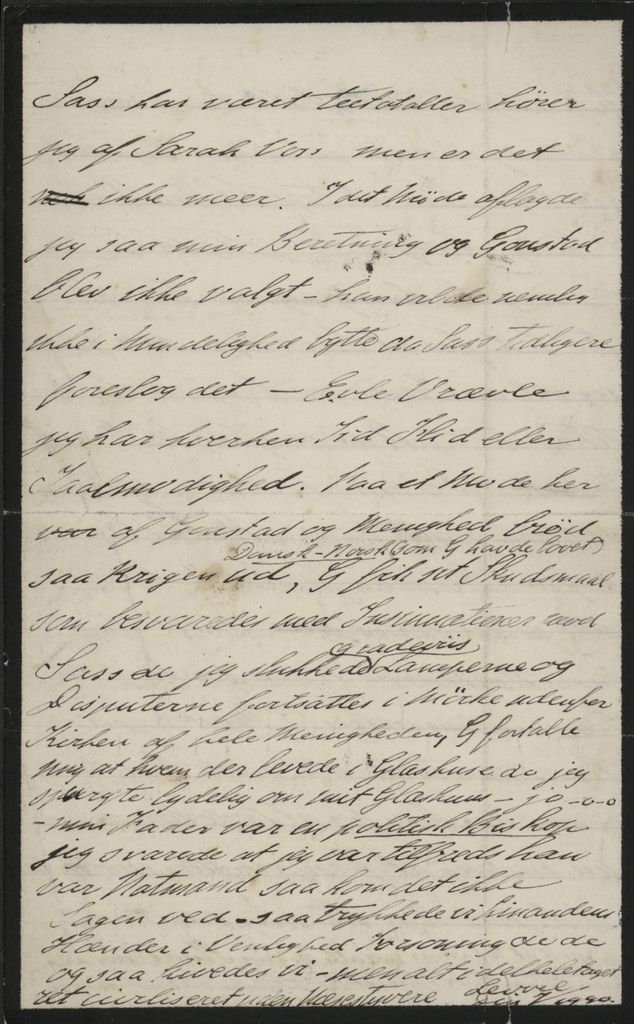 Sass har været teetotaller hører
jeg af Sarah Vors men er det
ikke meer. I det Møde aflagde
jeg saa min Beretning og Goustad
blev ikke valgt – han vilde nemlig
ikke i Mindelighed bytte da Sass tidligere
foreslog det – Evle Vrævle
jeg har hverken Tid Flid eller
Taalmodighed. Paa et Møde her
af Goustad og Menighed brød
Dansk-Norsk (som G havde lovet)
saa Krigen ud, G fik sit Skudsmaal
som besvaredes med Insinuationer mod
gradevis
Sass da jeg slukkede Lamperne og
Disputerne fortsattes i Mörke udenfor
Kirken af hele Menigheden, G fortalte
mig at hvem der levede i Glashuse da jeg
spurgte lydelig om mit Glashuus – jo –o–o
– min Fader var en politisk Biskop
jeg svarede at jeg var tilfreds han
var Natmand saa kom det ikke
Sagen ved – saa trykkede vi hinandens
Hænder i Venlighed Forsoning
og saa hivedes vi – men alt i det hele taget
ret civiliseret uden Næsestyvere